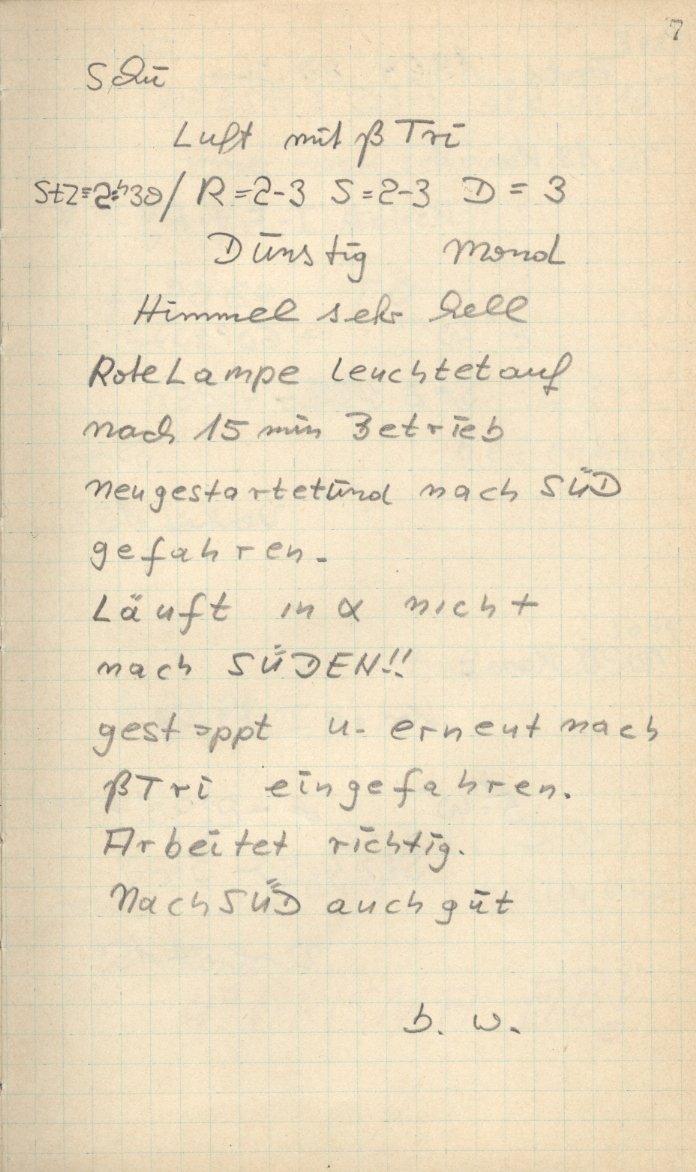 7
Schü
Luft mit β Tri
StZ=2ʰ30/ R=2-3 S=2-3 D=3
Dunstig Mond
Himmel sehr hell
Rote Lampe leuchtet auf
nach 15 min Betrieb
neugestartet und nach SÜD
gefahren.
Läuft in α nicht
nach SÜDEN!!
gestoppt u. erneut nach
βTri eingefahren.
Arbeitet richtig.
Nach SÜD auch gut
b. w.